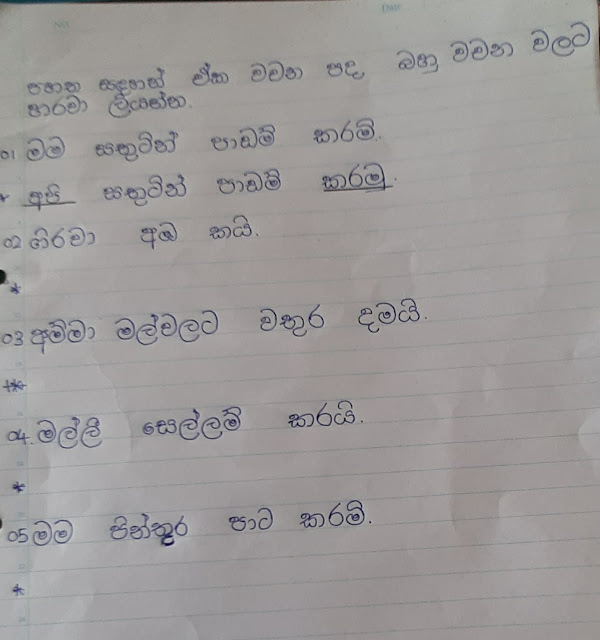 පහත සඳහන් ඒක වචන පද, බහු වචන වලට
හාරවා ලියන්න.
01 මම සතුටින් පාඩම් කරමි.
* අපි සතුටින් පාඩම් කරමු.
02 ගිරවා අඹ කයි.
*
03 අම්මා මල්වලට වතුර දමයි.
*
04. මල්ලී සෙල්ලම් කරයි.
*
05 මම පින්තූර පාට කරමි.
*